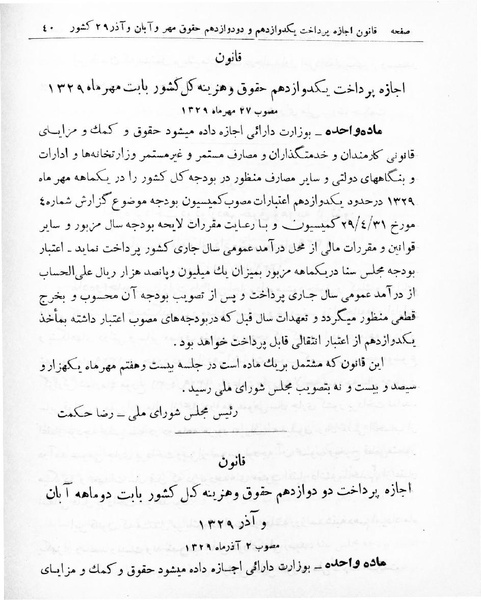 صفحه قانون اجازه پرداخت یکدوازدهم و دودوازدهم حقوق مهر و آبان و آذر ۲۹ کشور ۴۰
قانون
اجازه پرداخت یکدوازدهم حقوق و هزینه کل کشور بابت مهرماه ۱۳۲۹
مصوب ۲۷ مهرماه ۱۳۲۹
ماده واحده ـ بوزارت دارائی اجازه داده میشود حقوق و کمک و مزایای
قانونی کارمندان و خدمتگذاران و مصارف مستمر و غیرمستمر وزارتخانه‌ها و ادارات
و بنگاههای دولتی و سایر مصارف منظور در بودجه کل کشور را در یکماهه مهر ماه
۱۳۲۹ درحدود یکدوازدهم اعتبارات مصوب کمیسیون بودجه موضوع گزارش شماره ۴
مورخ ۲۹/۴/۳۱ کمیسیون و با رعایت مقررات لایحه بودجه سال مزبور و سایر
قوانین و مقررات مالی از محل درآمد عمومی سال جاری کشور پرداخت نماید ـ اعتبار
بودجه مجلس سنا دریکماهه مزبور بمیزان یك میلیون و پانصد هزار ریال علی‌الحساب
از درآمد عمومی سال جاری پرداخت و پس از تصویب بودجه آن محسوب و بخرج
قطعی منظور میگردد و تعهدات سال قبل که دربودجه‌های مصوب اعتبار داشته بمأخذ
یکدوازدهم از اعتبار انتقالی قابل پرداخت خواهد بود .
این قانون که مشتمل بر یك ماده است در جلسه بیست و هفتم مهرماه یکهزار و
سیصد و بیست و نه بتصویب مجلس شورای ملی رسید .
رئیس مجلس شورای ملی ـ رضا حکمت
قانون
اجازه پرداخت دو دوازدهم حقوق و هزینه کل کشور بابت دوماهه آبان
و آذر ۱۳۲۹
مصوب ۲ آذرماه ۱۳۲۹
ماده واحده ـ بوزارت دارائی اجازه داده میشود حقوق و کمک و مزایای